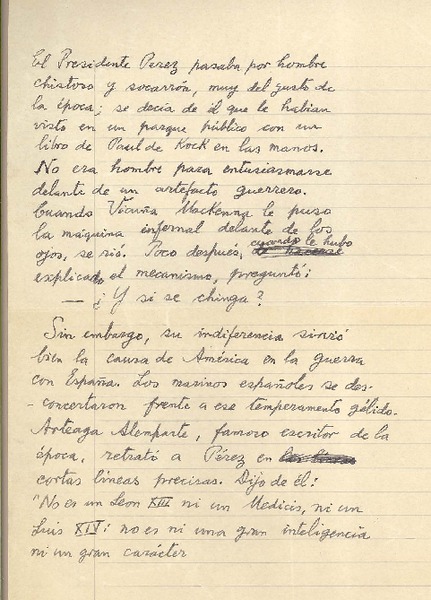 El Presidente Perez pasaba por hombre
chistoso y socarrón, muy del gusto de
la época; se decía de él que le habían
visto en un parque público con un
libro de Paul de Kock en las manos.
No era hombre para entusiasmarse
delante de un artefacto guerrero.
Cuando Vicuña MacKenna le puso
la máquina infernal delante de los
ojos, se rió. Poco después, cuando le hubo
explicado el mecanismo, preguntó:
— ¿Y si se chinga?
Sin embargo, su indiferencia sirvió
bien la causa de América en la guerra
con España. Los marinos españoles se des-
concertaron frente a ese temperamento gélido.
Arteaga Alemparte, famoso escritor de la
época, retrató a Pérez en
cortas líneas precisas. Dijo de él:
"No es un Leon XIII ni un Medicis, ni un
Luis XIV: no es ni una gran inteligencia
ni un gran carácter